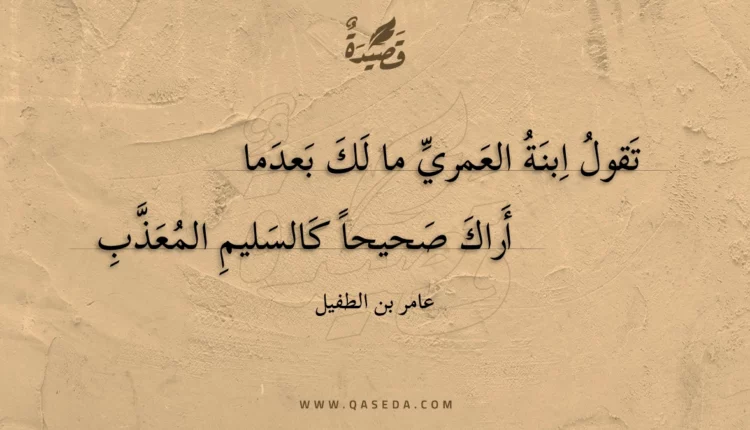 قَصِيدَةٌ
تَقولُ اِبنَةُ العَمريِّ ما لَكَ بَعدَما
أَراكَ صَحيحاً كَالسَليمِ المُعَذَّبِ
عامر بن الطفيل
WWW.QASEDA.COM